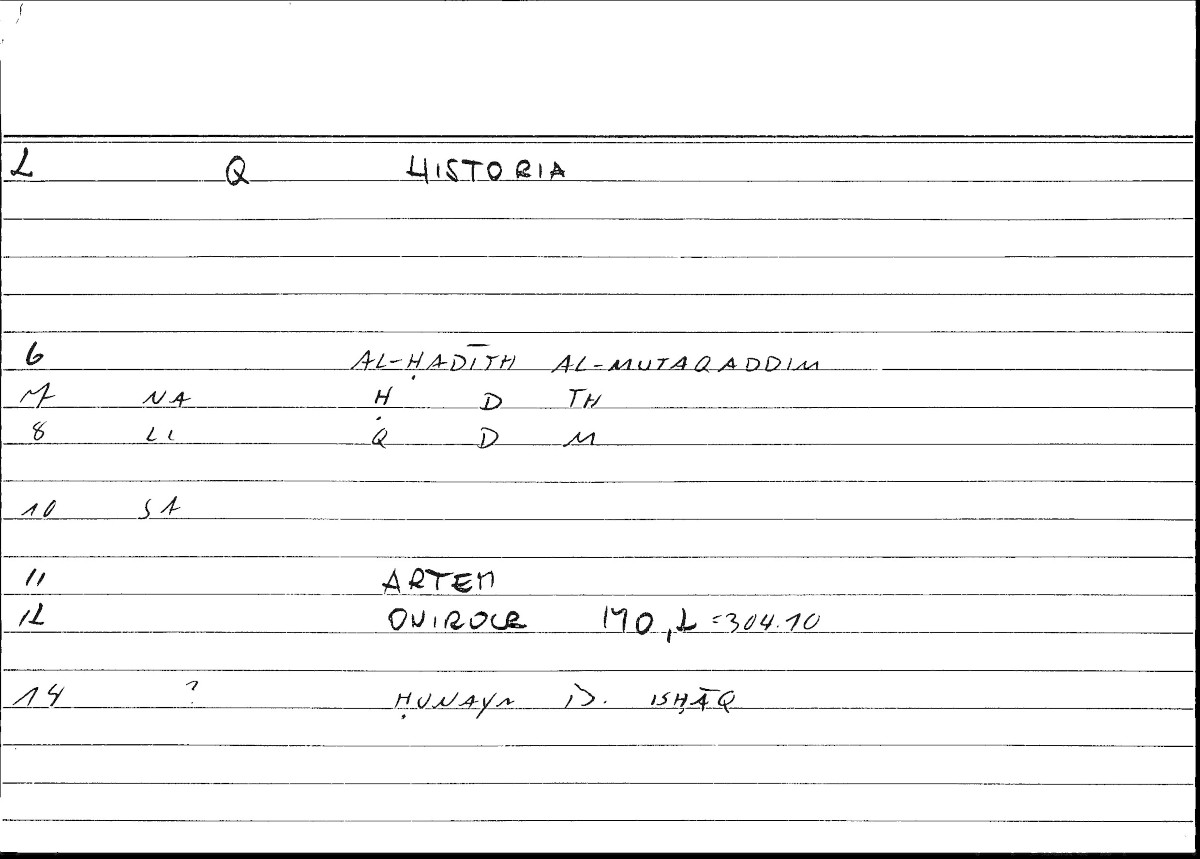 2 Q HISTORIA
6 AL-ḤADĪTH AL-MUTAQADDIM
7 NA Ḥ D TH
8 LL Q D M
10 SA
11 ARTEM
12 ONIROCR 170,2 = 304.10
14 ? ḤUNAYN B. ISḤĀQ